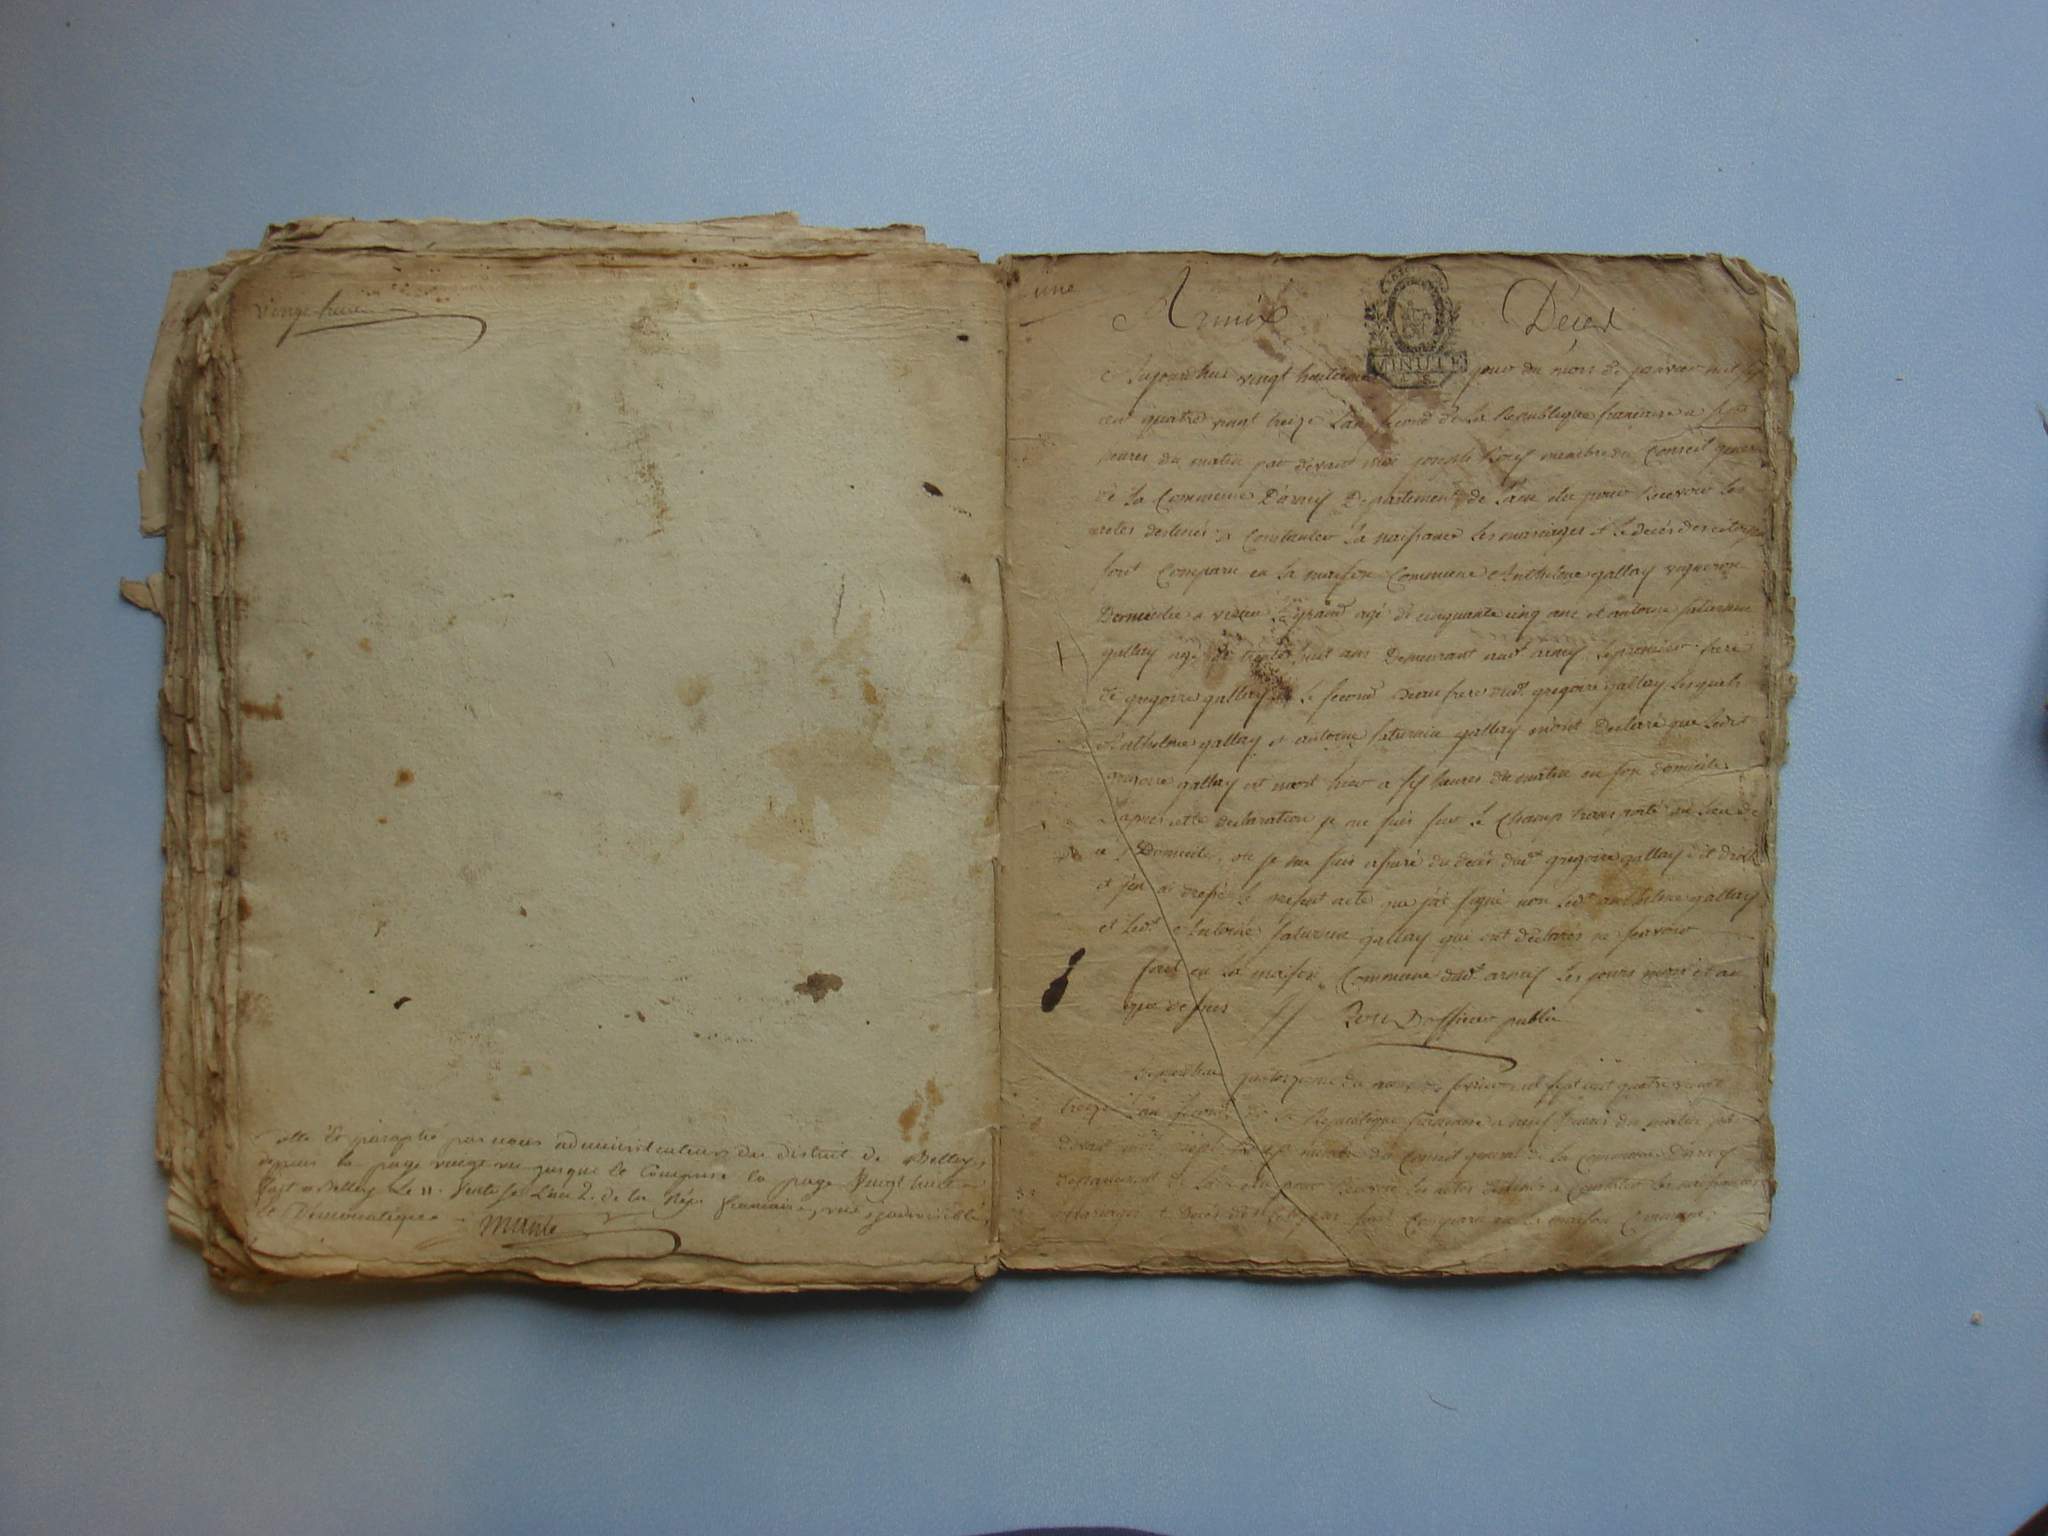 vingt huit
Cotté Et paraphé par nous administrateur du district de Belley
depuis la page vingt une jusque et Comprise la page vingt huit
fait a Belley Le 11. ventose L'an 2. de la Rép. francaise, une & indivisible,
et Démocratique
une
Arnix Décès
MINUTE
Aujourdhui vingt huitieme jour du mois de janvier mil sept
cent quatre vingt treize L'an second de La Republique francaise a sept
heures du matin par devant moi joseph Roux membre du Conseil general
de La Commune D'arnix Departement de L'ain elu pour Recevoir Les
actes destinés a Constater La naissance Les mariages et Le décès des citoyens
sont Comparu en La maison Commune Anthelme gallay vigneron
Domicilie a Le grand agé de cinquante cinq ans et antoine saturnin
gallay agé de huit ans Demeurant aud.t Le premier frere
de gregoire gallay Le second Beau frere dud.t gregoire gallay Lesquels
Anthelme gallay et antoine saturnin gallay m'ont Declaré que Ledit
gregoire gallay est mort hier a six heures du matin en son domicile
D'apres cette declaration je me suis sur Le Champ transporté au Lieu de
ce Domicile, ou je me suis assuré du décès dud.t gregoire gallay dit
et j'en ai dressé Le present acte que j'ai signé non Led.t anthelme gallay
et Led.t Antoine saturnin gallay qui ont déclarés ne sçavoir
fait en La maison Commune dud.t Les jours mois et an
que dessus // officier public
Aujourdhui quatorzieme du mois de fevrier mil sept cent quatre vingt
treize L'an second de La Republique francaise a neuf heures du matin par
devant moi joseph Roux membre du Conseil general de La Commune
departement de L'ain elu pour Recevoir Les actes destinés a Constater Les naissances
mariages et décès des Citoyens sont Comparu en La maison Commune